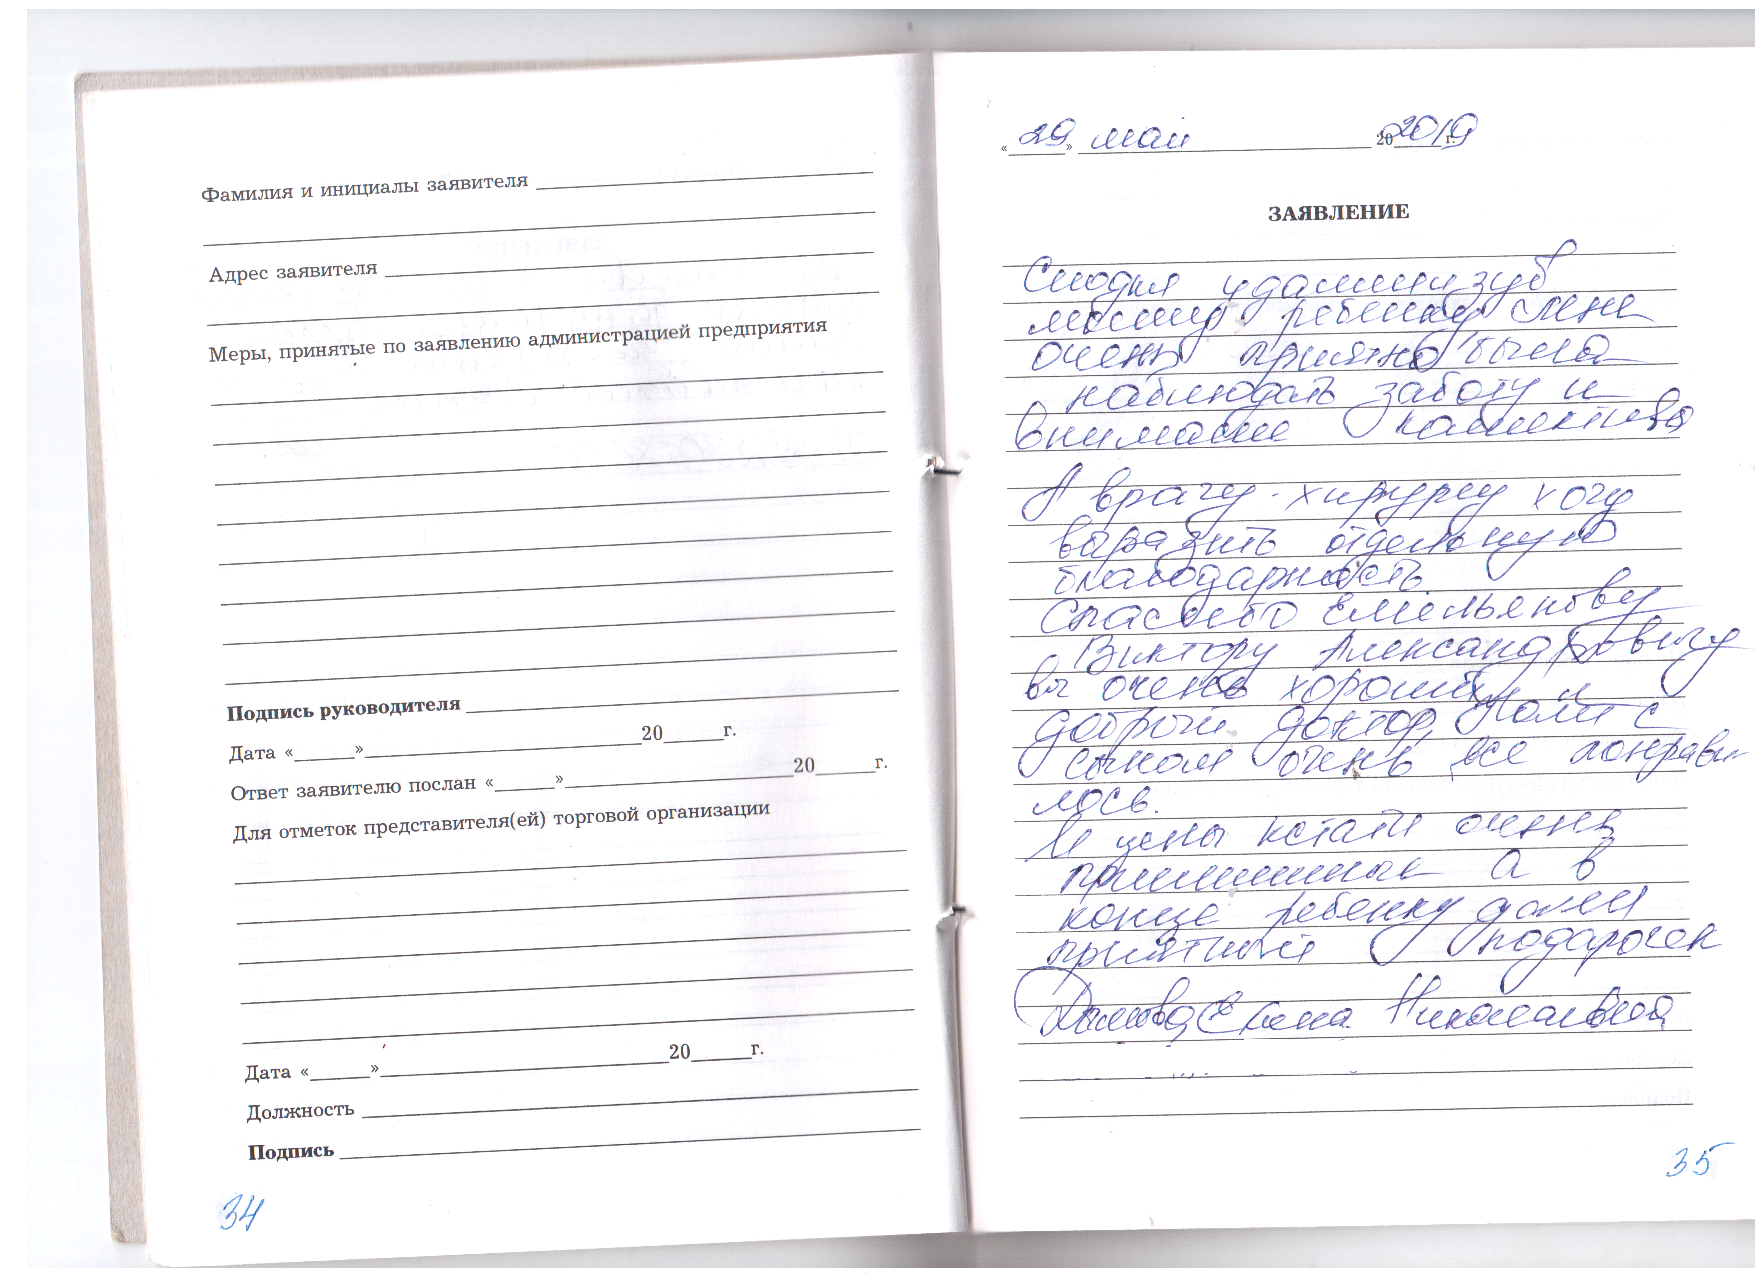 Фамилия и инициалы заявителя
Адрес заявителя
Меры, принятые по заявлению администрацией предприятия
Подпись руководителя
Дата «______»____________20______г.
Ответ заявителю послан «______»____________20______г.
Для отметок представителя(ей) торговой организации
Дата «______»____________20______г.
Должность
Подпись
34
« 29 » май 20 2019 г.
ЗАЯВЛЕНИЕ
удалили зуб
моему ребенку мне
очень приятно было
наблюдать заботу и
внимание
А врачу-хирургу хочу
выразить отдельную
благодарность
Спасибо Емельянову
Виктору Александровичу
вы очень хороший и
добрый доктор, Нам с
сыном очень все понрави-
лось.
И цены кстати очень
а в
конце ребенку дали
приятный подарочек
Елена Николаевна
35